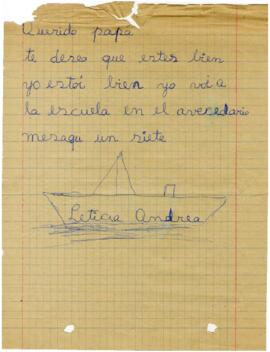 Querido papá
te deseo que estes bien
yo estoi bien yo voi a
la escuela en el avecedario
mesaqu un siete
Leticia Andrea